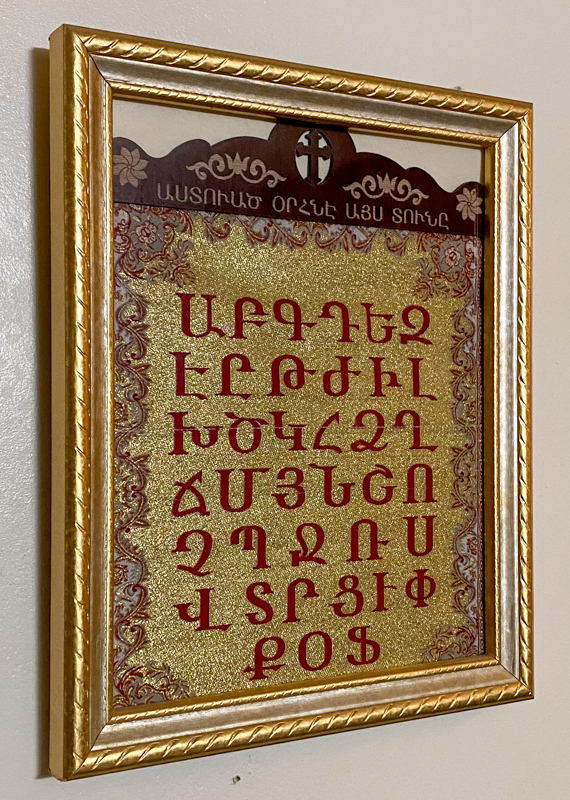 ԱՍՏՈՒԱԾ ՕՐՀՆԷ ԱՅՍ ՏՈՒՆԸ
ԱԲԳԴԵԶ
ԷԸԹԺԻԼ
ԽԾԿՀՁՂ
ՃՄՅՆՇՈ
ՉՊՋՌՍ
ՎՏՐՑՒՓ
ՔՕՖ